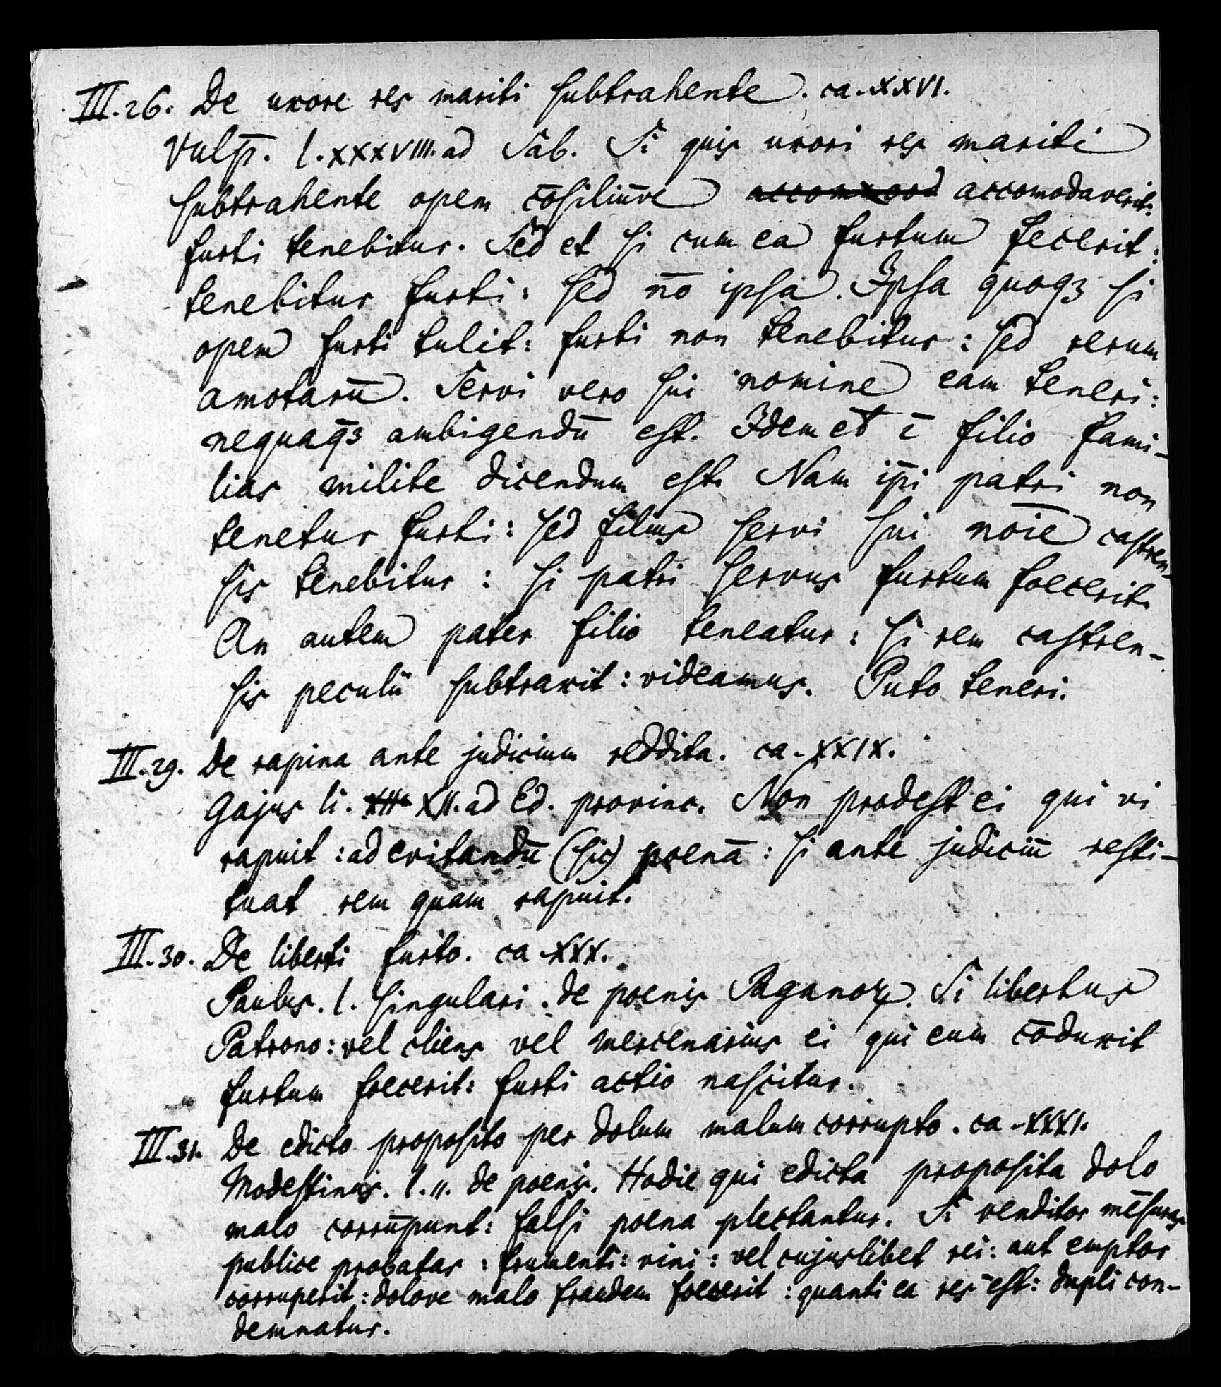 III.26. De uxore res mariti subtrahente. ca. XXVI.
Vulp̄. l. XXXVIII. ad Sab. Si quis uxori res mariti
subtrahente opem cōsiliūve accomod accomodaverit:
furti tenebitur. Sed et si cum ea furtum fecerit:
tenebitur furti: sed nō ipsa. Ipsa quoqꝫ si
opem furti tulit: furti non tenebitur: sed rerum
amotarū. Servi vero sui nomine eam teneri:
nequaq̄ꝫ ambigendū est. Idem et ī filio fami-
lias milite dicendum est. Nam ip̄i patri non
tenetur furti: sed filius servi sui nōie castren-
sis tenebitur: si patri servus furtum foecerit.
An autem pater filio teneatur: si rem castren-
sis peculii subtraxit: videamus. Puto teneri.
III.29. De rapina ante judicium reddita. ca. XXIX.
Gajus li. XIII. XII. ad Ed. provinc. Non prodest ei qui vi
rapuit: ad evitandū (sic) poenā: si ante judiciū resti-
tuat rem quam rapuit.
III.30. De liberti furto. ca. XXX.
Paulus. l. singulari. de poenis Paganoꝝ. Si libertus
Patrono: vel cliens vel mercenarius ei qui eum cōduxit
furtum foecerit: furti actio nascitur.
III.31. De edicto proposito per dolum malum corrupto. ca. XXXI.
Modestinus. l. II. de poenis. Hodie qui edicta proposita dolo
malo corrūpunt: falsi poena plectantur. Si venditor mēsuras
publice probatas: frumenti: vini: vel cujuslibet rei: aut emptor
corruperit: dolove malo fraudem foecerit: quanti ea res est: dupli con-
demnatur.